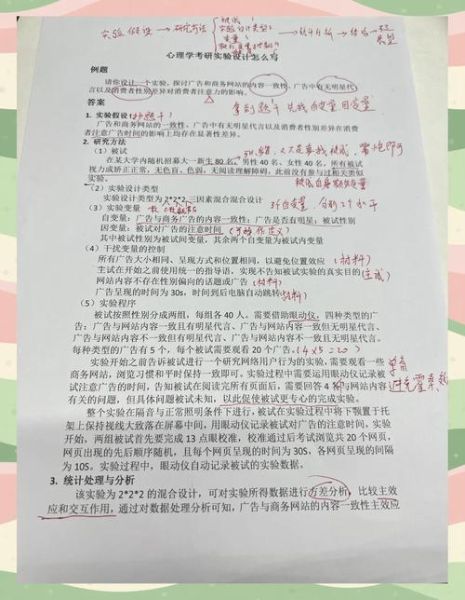 实验假设→研究方法
被试
实验设计类型
变量
→统计分析→结果
心理学考研实验设计怎么写
例题
请你设计一个实验，探讨广告和商务网站的内容一致性、广告中有无明星代
言以及消费者性别差异对消费者注意力的影响。
拿到题干先找自变量因变量
答案
1. 实验假设
广告和商务网站的一致性、广告中有无明星代言以及消费者性别差异在消费
者注意广告时间的影响上均存在显著性差异。
2. 研究方法
（1）被试
在某大学内随机招募大一新生 80 名，男性 40 名、女性 40 名，所有被试
视力或矫正正常，无色盲、色弱、无阅读理解障碍，此前没有参与过相关类似
实验。
（2）实验设计类型
实验设计类型为 2*2*2 三因素混合设计
（3）实验变量
自变量：广告与商务广告的内容一致性；广告是否有明星；被试性别
因变量：被试对广告的注意时间
其中被试性别为被试间变量，其余两个自变量为被试内变量
（4）干扰变量的控制
所有广告大小相同、呈现方式和位置相同，以避免位置效应（材料）
主试在开始之前使用统一的指导语，实现不告知被试实验的真实目的（主试）
网站内容不存在性别偏向的话题或广告（材料）
广告呈现的时间为 30s，时间到后电脑自动跳转（材料）
（5）实验程序
被试按照性别分成两组，每组各 40 人。需要借助眼动仪，四种类型的广
告：广告与网站内容一致且有明星代言、广告与网站内容一致但无明星代言、
广告与网站内容不一致但有明星代言、广告与网站内容不一致且无明星代言。
每种类型的广告有 5 个，每个被试需要观看 20 个广告。（4×5=20）
实验开始之前告诉被试进行一个研究网络用户行为的实验，需要观看一些
商务网站，浏览习惯和平时保持一致即可。实验过程中需要运用眼动仪记录被
试注意广告的时间，告知被试在阅读完所有页面后，需要回答 4 个与网站内容
有关的问题，但具体问题被试未知，以此促使被试更专心的完成实验。
整个实验在隔音与正常照明条件下进行，被试在实验过程中将下颚置于托
架上保持视线大致落在屏幕中间，用眼动仪记录被试对广告的注意时间。实验
开始，两组被试首先要完成 13 点眼校准，校准通过后考试浏览共 20 个网页，
网页出现的先后顺序随机，且每个网页呈现的时间为 30S，各网页呈现的间隔
为 10S。实验过程中，眼动仪自动记录被试的实验数据。
3. 统计处理与分析
该实验为 2*2*2 的混合设计，可对实验所得数据进行方差分析，比较主效
应和交互作用，通过对数据处理分析可知，广告与商务网站的内容一致性主效应